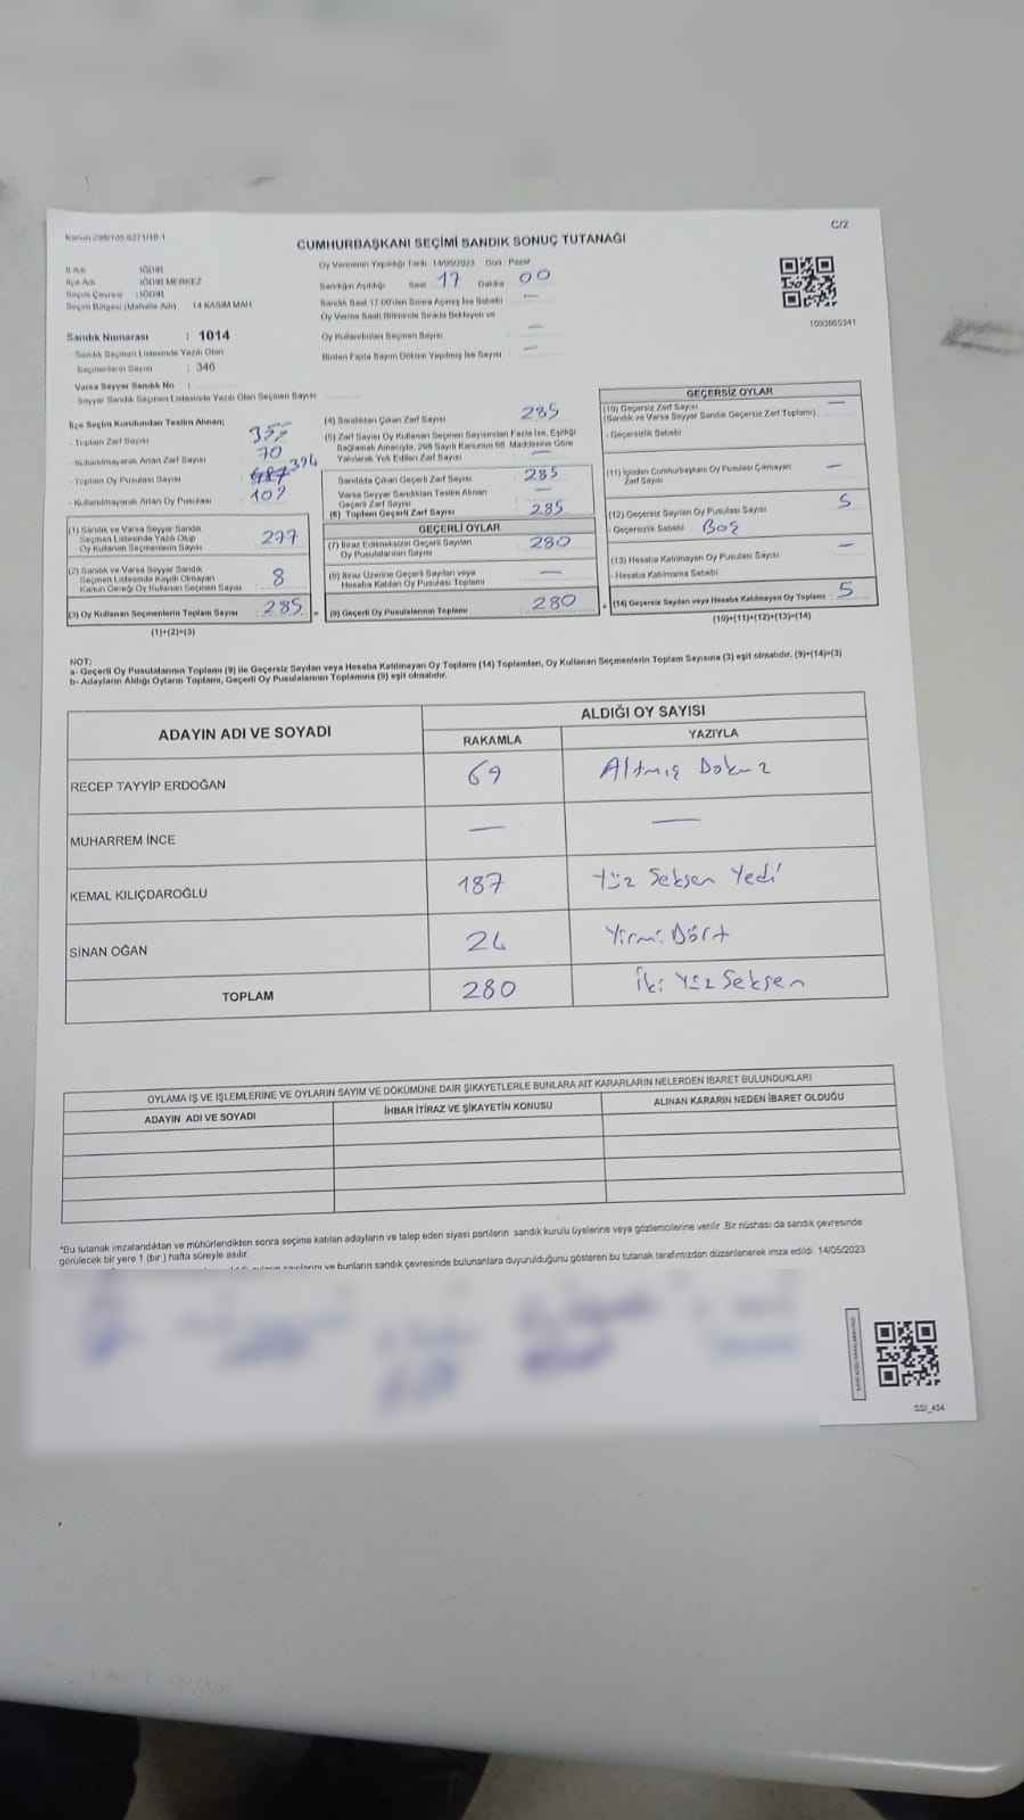 C/2
CUMHURBAŞKANI SEÇİMİ SANDIK SONUÇ TUTANAĞI
Oy Vermenin Yapıldığı Tarih: 14/05/2023 Gün: Pazar
IĞDIR
IĞDIR MERKEZ
IĞDIR
14 KASIM MAH.
Sandığın Açıldığı Saat 17 Dakika 00
1093665341
Sandık Numarası : 1014
: 346
Varsa Seyyar Sandık No :
Seyyar Sandık Seçmen Listesinde Yazılı Olan Seçmen Sayısı
İlçe Seçim Kurulundan Teslim Alınan;
- Toplam Zarf Sayısı
- Kullanılmayarak Artan Zarf Sayısı 70
- Toplam Oy Pusulası Sayısı 394
- Kullanılmayarak Artan Oy Pusulası 109
(1) Sandık ve Varsa Seyyar Sandık
Seçmen Listesinde Yazılı Olup
Oy Kullanan Seçmenlerin Sayısı 277
(2) Sandık ve Varsa Seyyar Sandık
Seçmen Listesinde Kayıtlı Olmayan
Kanun Gereği Oy Kullanan Seçmen Sayısı 8
(3) Oy Kullanan Seçmenlerin Toplam Sayısı 285
(1)+(2)=(3)
(4) Sandıktan Çıkan Zarf Sayısı 285
(5) Zarf Sayısı Oy Kullanan Seçmen Sayısından Fazla İse, Eşitliği
Sağlamak Amacıyla, 298 Sayılı Kanunun 98. Maddesine Göre
Yakılarak Yok Edilen Zarf Sayısı —
Sandıkta Çıkan Geçerli Zarf Sayısı 285
Varsa Seyyar Sandıktan Teslim Alınan
Geçerli Zarf Sayısı —
(6) Toplam Geçerli Zarf Sayısı 285
GEÇERLİ OYLAR
(7) İtiraz Edilmeksizin Geçerli Sayılan
Oy Pusulalarının Sayısı 280
(8) İtiraz Üzerine Geçerli Sayılan veya
Hesaba Katılan Oy Pusulası Toplamı —
(9) Geçerli Oy Pusulalarının Toplamı 280
GEÇERSİZ OYLAR
(10) Geçersiz Zarf Sayısı —
(Sandık ve Varsa Seyyar Sandık Geçersiz Zarf Toplamı)
- Geçersizlik Sebebi
(11) İçinden Cumhurbaşkanı Oy Pusulası Çıkmayan
Zarf Sayısı —
(12) Geçersiz Sayılan Oy Pusulası Sayısı 5
- Geçersizlik Sebebi Boş
(13) Hesaba Katılmayan Oy Pusulası Sayısı —
- Hesaba Katılmama Sebebi
(14) Geçersiz Sayılan veya Hesaba Katılmayan Oy Toplamı 5
(10)+(11)+(12)+(13)=(14)
NOT:
a- Geçerli Oy Pusulalarının Toplamı (9) ile Geçersiz Sayılan veya Hesaba Katılmayan Oy Toplamı (14) Toplamları, Oy Kullanan Seçmenlerin Toplam Sayısına (3) eşit olmalıdır. (9)+(14)=(3)
b- Adayların Aldığı Oyların Toplamı, Geçerli Oy Pusulalarının Toplamına (9) eşit olmalıdır.
ADAYIN ADI VE SOYADI
ALDIĞI OY SAYISI
RAKAMLA YAZIYLA
RECEP TAYYİP ERDOĞAN 69 Altmış Dokuz
MUHARREM İNCE — —
KEMAL KILIÇDAROĞLU 187 Yüz Seksen Yedi
SİNAN OĞAN 24 Yirmi Dört
TOPLAM 280 İki Yüz Seksen
OYLAMA İŞ VE İŞLEMLERİNE VE OYLARIN SAYIM VE DÖKÜMÜNE DAİR ŞİKAYETLERLE BUNLARA AİT KARARLARIN NELERDEN İBARET BULUNDUKLARI
ADAYIN ADI VE SOYADI İHBAR İTİRAZ VE ŞİKAYETİN KONUSU ALINAN KARARIN NEDEN İBARET OLDUĞU
*Bu tutanak imzalandıktan ve mühürlendikten sonra seçime katılan adayların ve talep eden siyasi partilerin sandık kurulu üyelerine veya gözlemcilerine verilir. Bir nüshası da sandık çevresinde
görülecek bir yere 1 (bir) hafta süreyle asılır.
ve bunların sandık çevresinde bulunanlara duyurulduğunu gösteren bu tutanak tarafımızdan düzenlenerek imza edildi. 14/05/2023